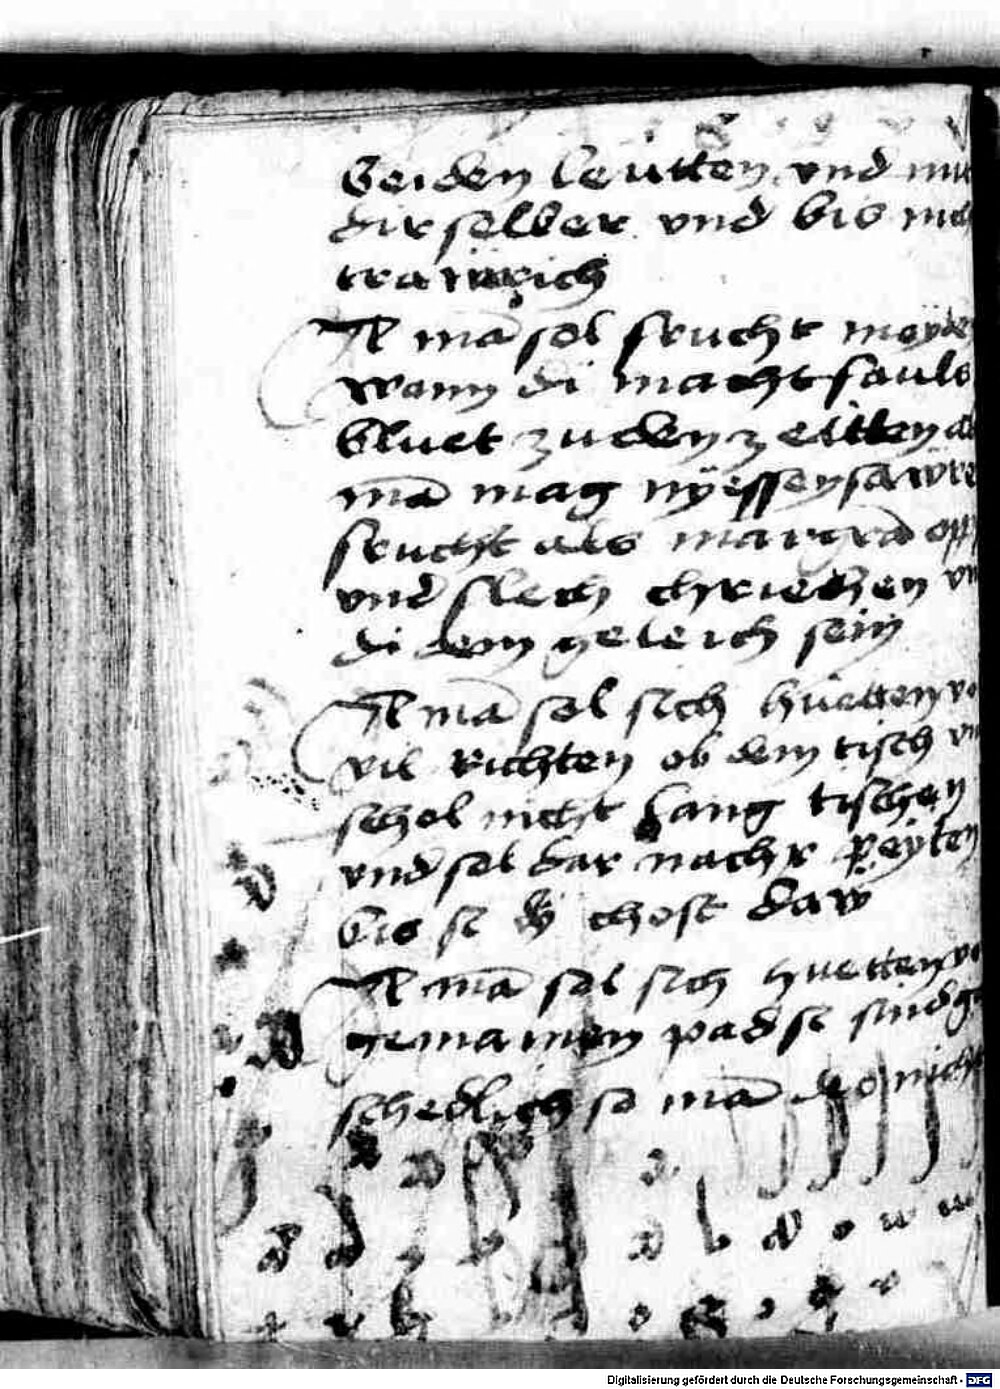 beiden leütten und mit
dir selber und bis nich
trawrich
It mā sol frucht meyde
wann di macht fauls
bluet zu den zeitten
mā mag nyessen sawre
frucht als margrād opf
und slech chriechen vn
di dem geleich sein
It mā sol sich hüetten vo
vil richten ob dem tisch vn
schol nicht lang tischen
und sol dar nach peyten
bis se dy chost daw
It mā sol sich huetten vo
gemainen pad se sind
schedlich so mā des nicht
Digitalisierung gefördert durch die Deutsche Forschungsgemeinschaft - DFG